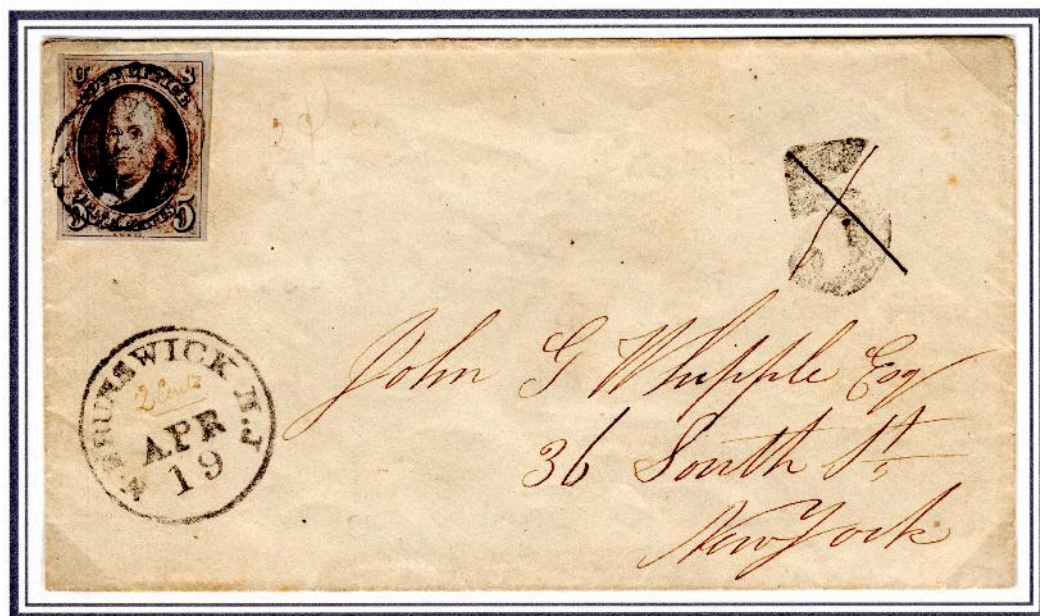 U S
POST OFFICE
FIVE CENTS
5 5
5
N. BRUNSWICK N.J
2 Cents
APR
19
John G Whipple Esq
36 South St,
New York